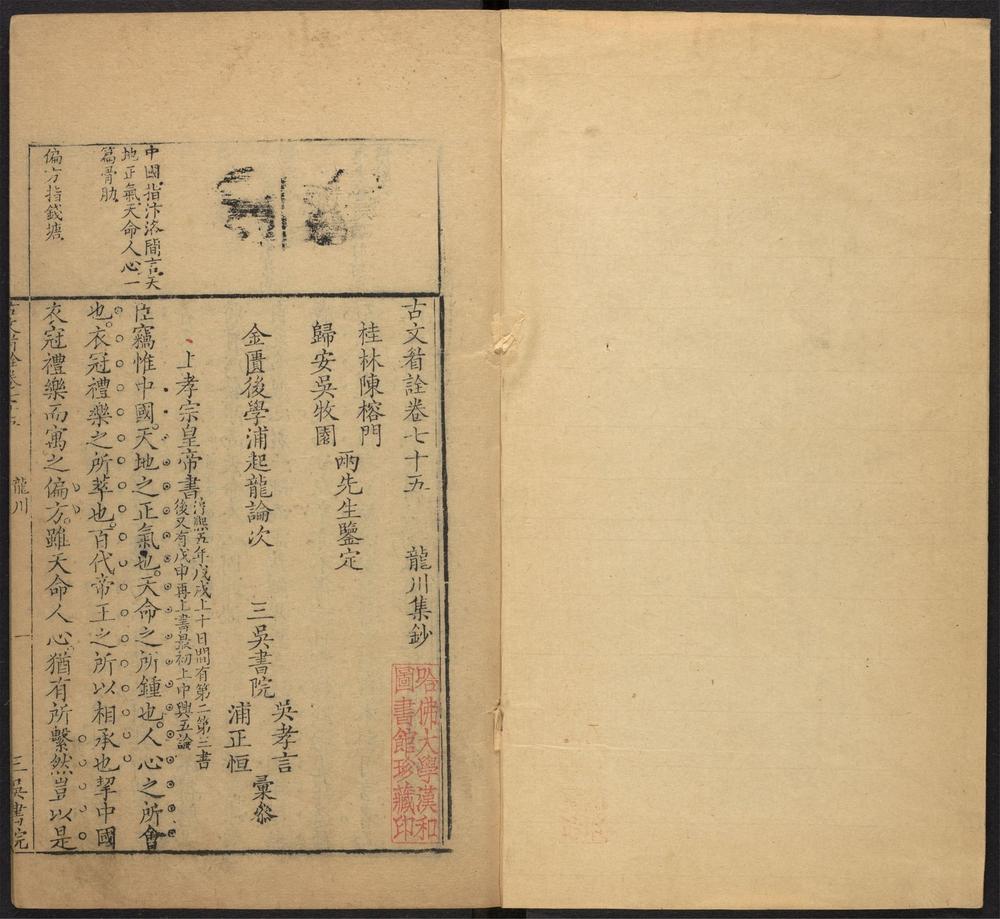 古文眉詮卷七十五　龍川集鈔
桂林陳榕門
歸安吳牧園
兩先生鑒定
金匱後學浦起龍論次　三吳書院
吳孝言
浦正恒
彙叅
上孝宗皇帝書
淳熙五年戊戌上十日間有第二第三書
後又有戊申再上書最初上中興五論
臣竊惟中國天地之正氣也天命之所鍾也人心之所會
也衣冠禮樂之所萃也百代帝王之所以相承也挈中國
衣冠禮樂而寓之偏方雖天命人心猶有所繫然豈以是
中國指汴洛間言天
地正氣天命人心一
篇骨肋
偏方指錢塘
龍川
一
三吳書院
哈佛大學漢和
圖書館珍藏印